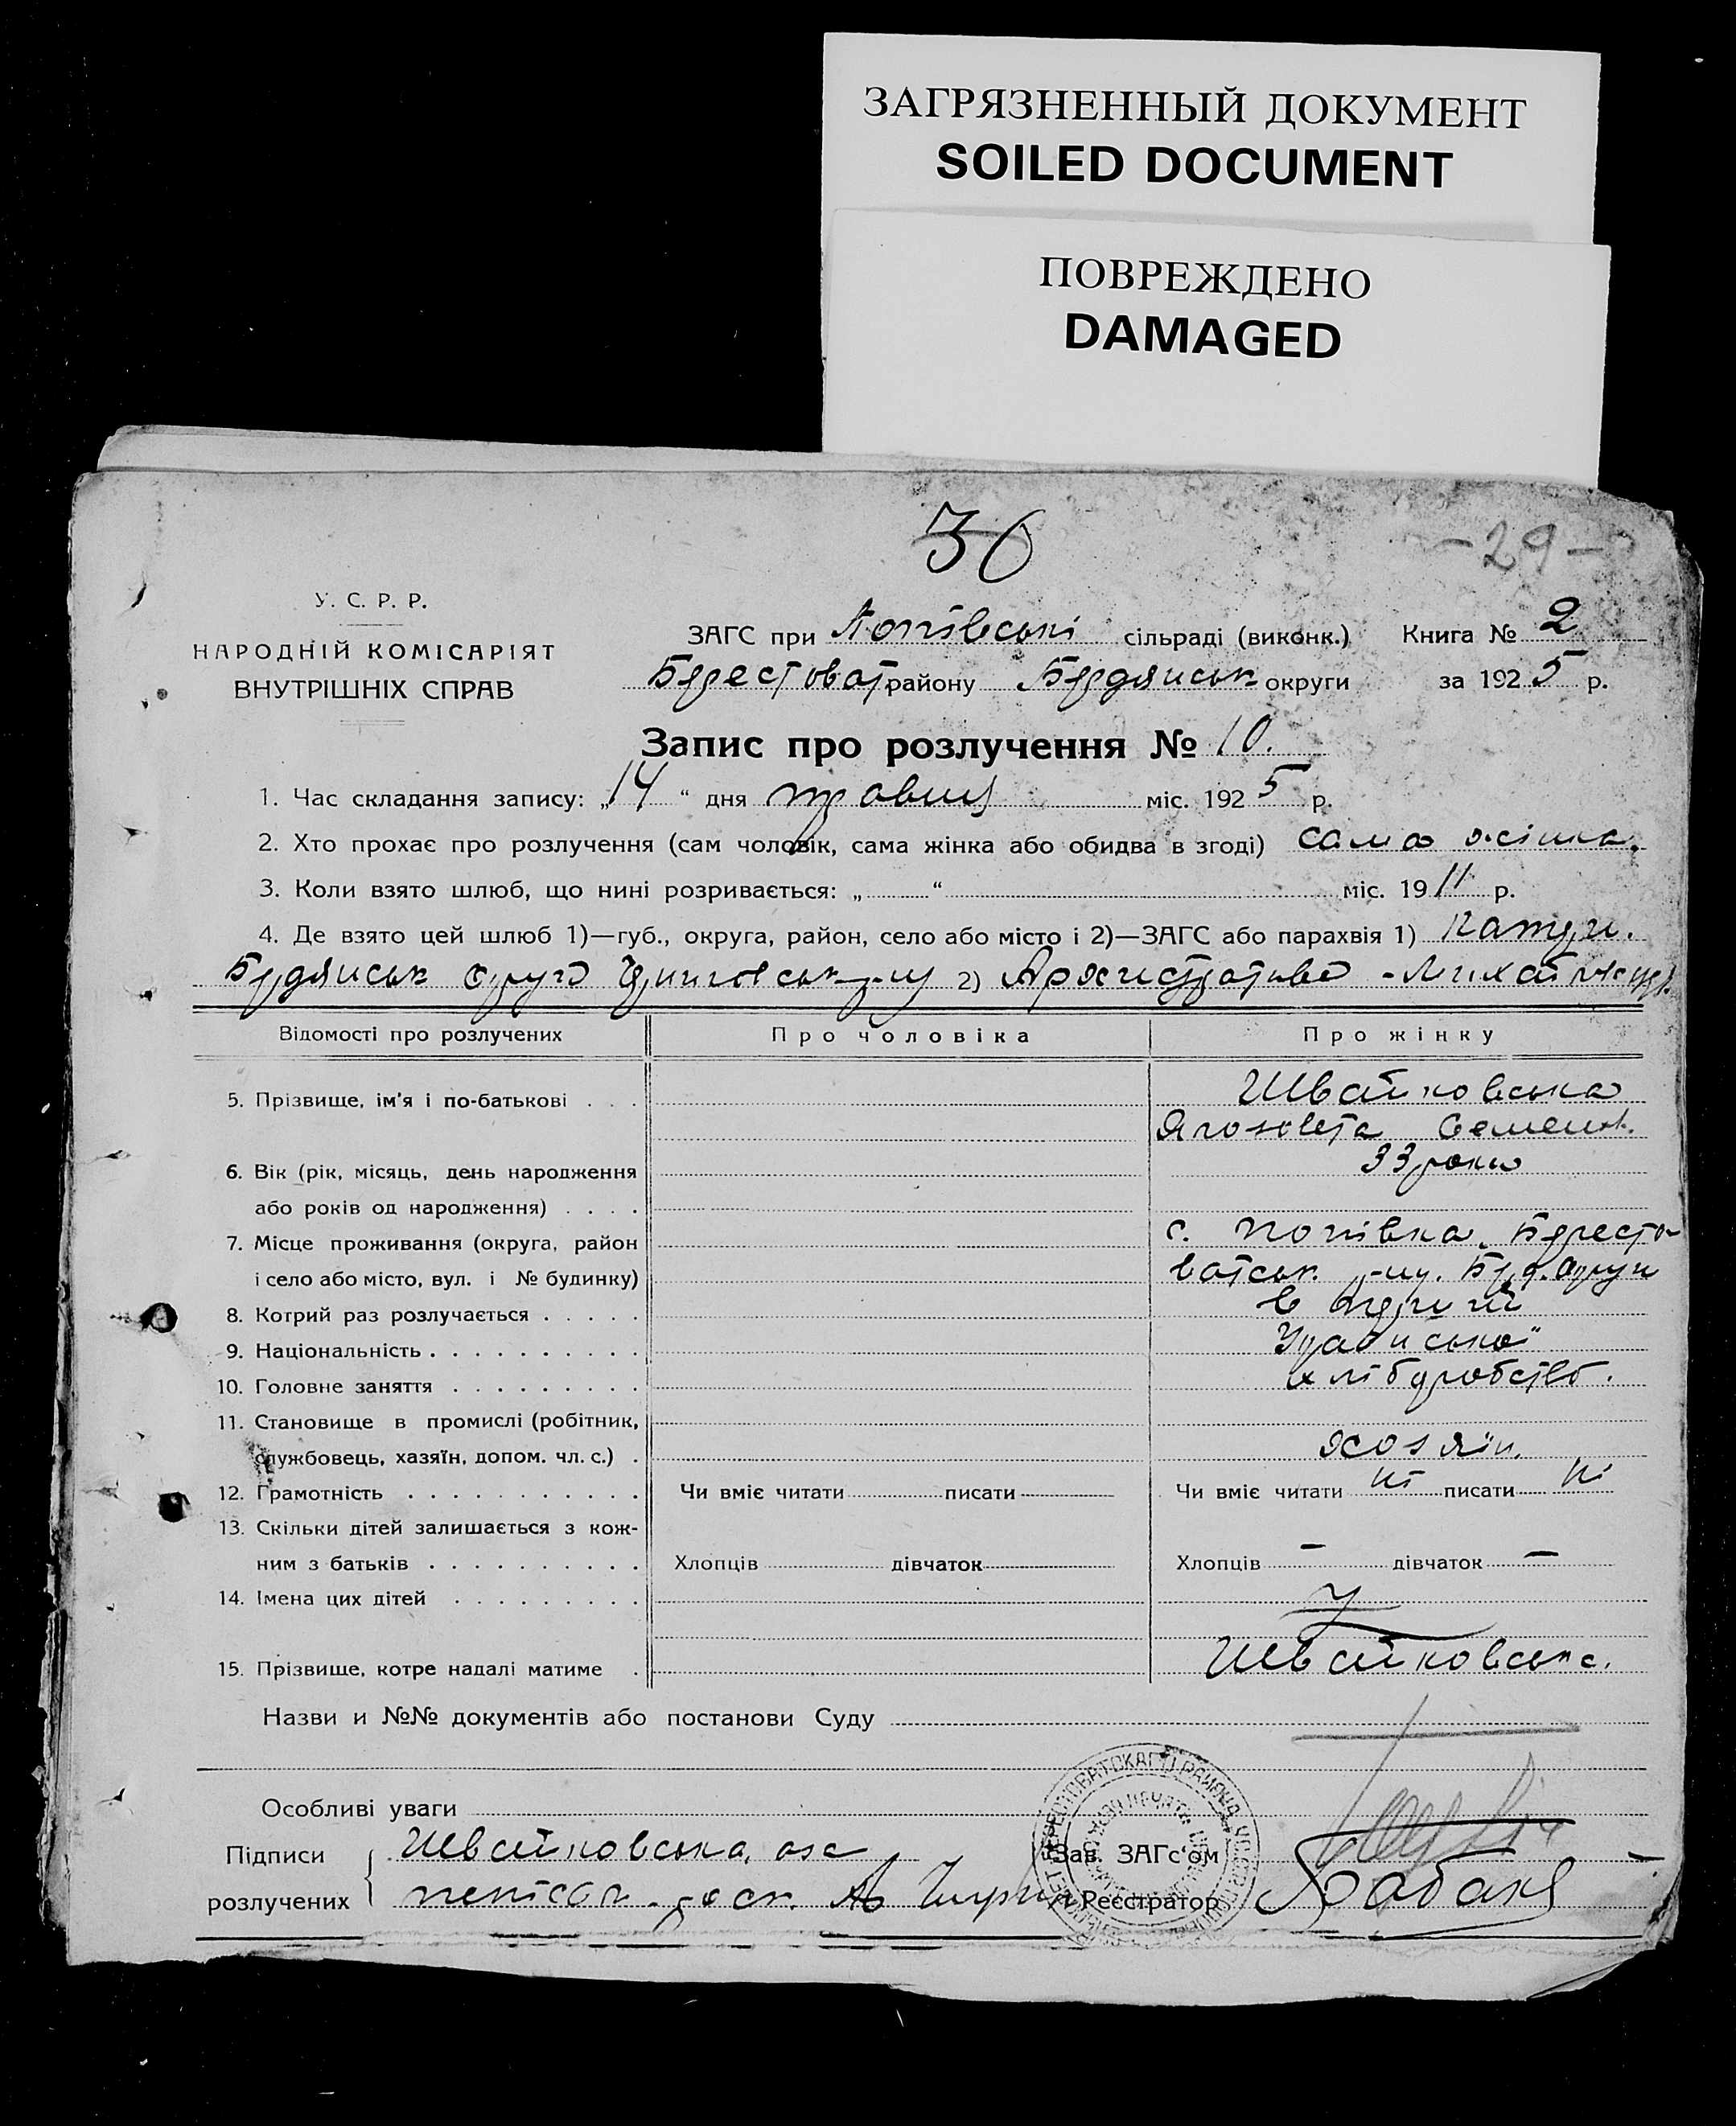 ЗАГРЯЗНЕННЫЙ ДОКУМЕНТ
SOILED DOCUMENT
ПОВРЕЖДЕНО
DAMAGED
36
-29-
У. С. Р. Р.
НАРОДНІЙ КОМІСАРІЯТ
ВНУТРІШНІХ СПРАВ
ЗАГС при Попівські сільраді (виконк.) Книга № 2
Берестоват району Бердянськ округи за 1925 р.
Запис про розлучення № 10.
1. Час складання запису: „14“ дня травня міс. 1925 р.
2. Хто прохає про розлучення (сам чоловік, сама жінка або обидва в згоді) сама жінка.
3. Коли взято шлюб, що нині розривається: „ “ міс. 1911 р.
4. Де взято цей шлюб 1)—губ., округа, район, село або місто і 2)—ЗАГС або парахвія 1)
Бердянськ 2)
Відомості про розлучених
Про чоловіка
Про жінку
5. Прізвище, ім'я і по-батькові . . . Швайковська
Семен.
6. Вік (рік, місяць, день народження 33 роки
або років од народження) . . . .
7. Місце проживання (округа, район с. Попівка, Бересто-
і село або місто, вул. і № будинку) ватськ. р-ну. Берд. округи
8. Котрий раз розлучається . . . . . в перший
9. Національність . . . . . . . . . .
10. Головне заняття . . . . . . . . . хліборобство.
11. Становище в промислі (робітник,
службовець, хазяїн, допом. чл. с.) . хозяїн.
12. Грамотність . . . . . . . . . . . Чи вміє читати писати Чи вміє читати ні писати ні
13. Скільки дітей залишається з кож-
ним з батьків . . . . . . . . . . Хлопців дівчаток Хлопців — дівчаток —
14. Імена цих дітей . . . . . . . . .
15. Прізвище, котре надалі матиме . Швайковська.
Назви и №№ документів або постанови Суду
Особливі уваги
Підписи Швайковська, Зав. ЗАГс'ом
розлучених Реєстратор Бабак